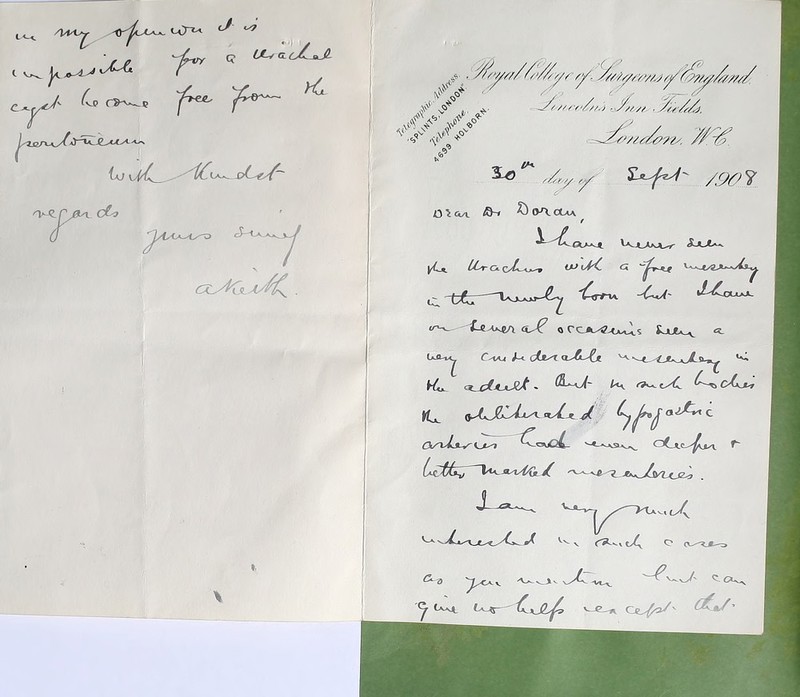 Telegraphic Address.
"SPLINTS, LONDON"
Telephone.
4699 HOLBORN.
Royal College of Surgeons of England.
Lincoln's Inn Fields.
London. W.C.
30th day of Sept 1908
Dear Dr Doran,
I have never seen
the Urachus with a free mesentery
in the newly born but I have
on several occasions seen a
very considerable mesentery in
the adult. But in such bodies
the obliterated hypogastric
arteries had even deeper &
better marked mesenteries.
I am very much
interested in such cases
as you mention but can
give no help except that
in my opinion it is
impossible for a Urachal
cyst become free from the
peritoneum
With Kindest
regards
yours
A Keith.